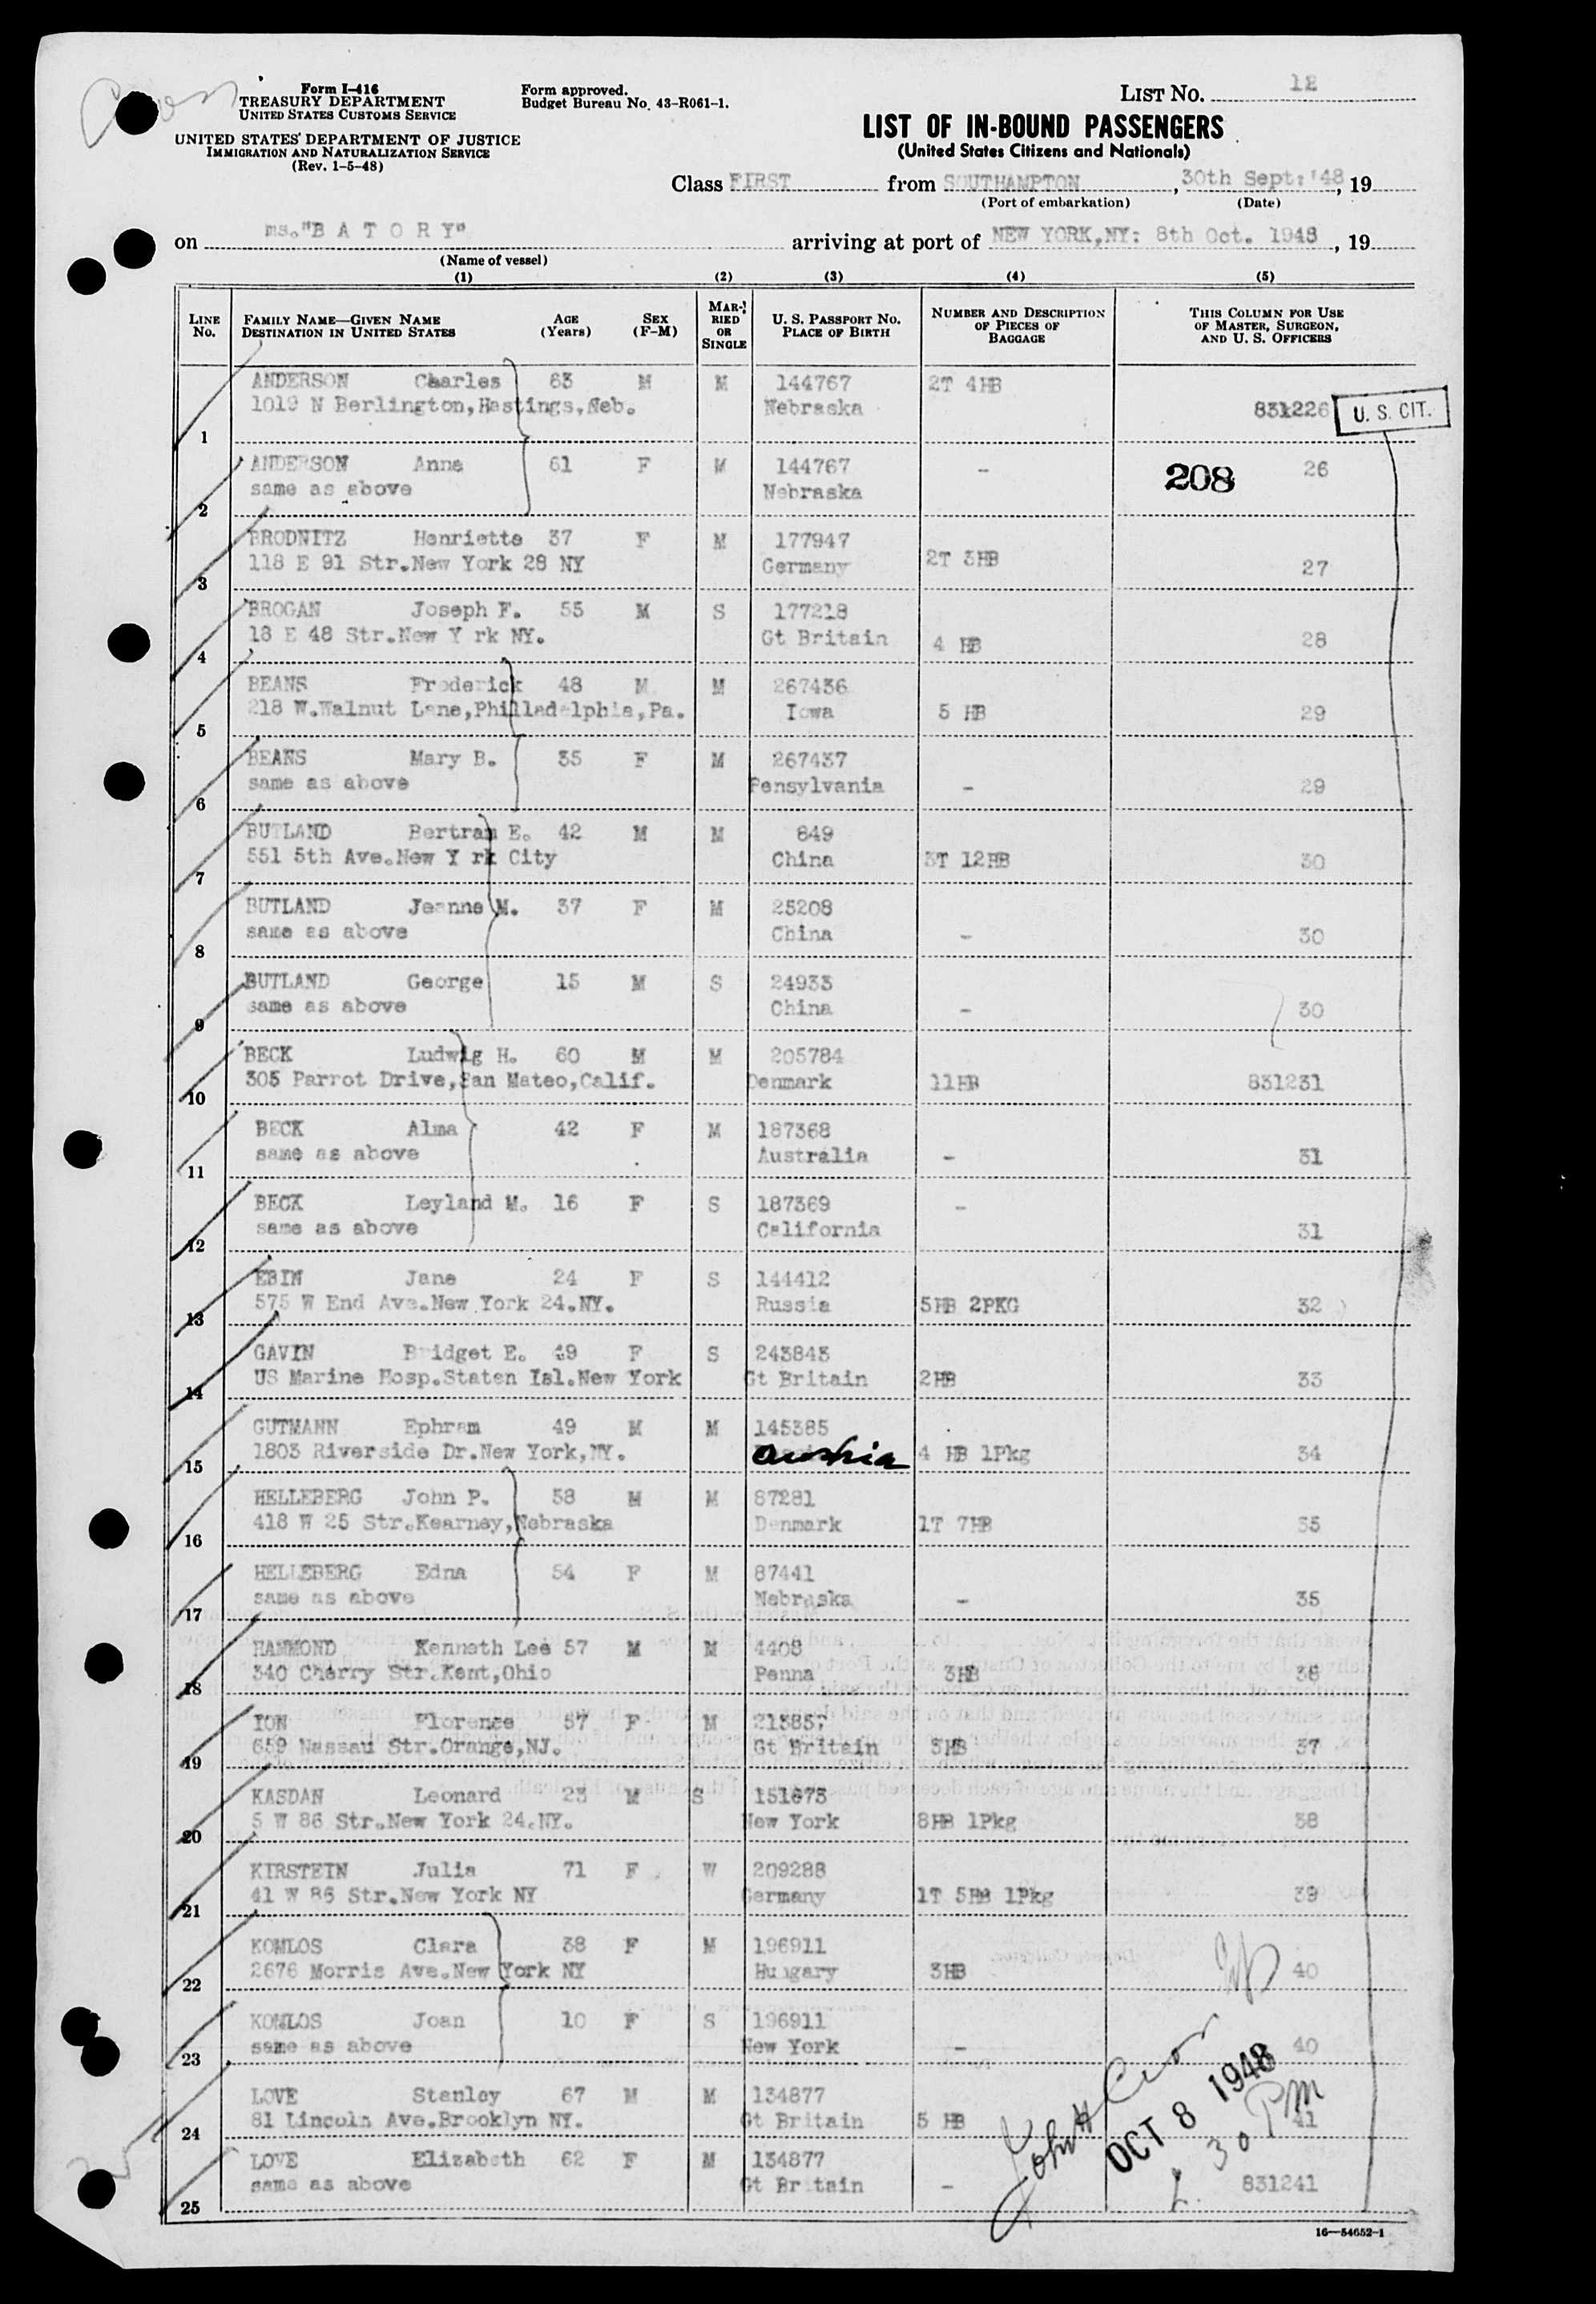 Form I-416
TREASURY DEPARTMENT
UNITED STATES CUSTOMS SERVICE
UNITED STATES DEPARTMENT OF JUSTICE
IMMIGRATION AND NATURALIZATION SERVICE
(Rev. 1-5-48)
Form approved.
Budget Bureau No. 43-R061-1.
LIST NO. 12
LIST OF IN-BOUND PASSENGERS
(United States Citizens and Nationals)
Class FIRST from SOUTHAMPTON, 30th Sept: '48, 19
(Port of embarkation) (Date)
on ms."B A T O R Y" arriving at port of NEW YORK,NY: 8th Oct. 1948, 19
(Name of vessel)
(1) (2) (3) (4) (5)
LINE NO. FAMILY NAME—GIVEN NAME DESTINATION IN UNITED STATES AGE (Years) SEX (F-M) MARRIED OR SINGLE U. S. PASSPORT NO. PLACE OF BIRTH NUMBER AND DESCRIPTION OF PIECES OF BAGGAGE THIS COLUMN FOR USE OF MASTER, SURGEON, AND U. S. OFFICERS
ANDERSON Charles 63 M M 144767 2T 4HB
1019 N Berlington,Hastings,Neb. Nebraska 831226 U. S. CIT.
1
ANDERSON Anna 61 F M 144767 - 208 26
same as above Nebraska
2
BRODNITZ Henriette 37 F M 177947
118 E 91 Str.New York 28 NY Germany 2T 3HB 27
3
BROGAN Joseph F. 55 M S 177218
18 E 48 Str.New Y rk NY. Gt Britain 4 HB 28
4
BEANS Frederick 48 M M 267436
218 W.Walnut Lane,Philladelphia,Pa. Iowa 5 HB 29
5
BEANS Mary B. 35 F M 267437
same as above Pensylvania - 29
6
BUTLAND Bertram E. 42 M M 849
551 5th Ave.New Y rk City China 3T 12HB 30
7
BUTLAND Jeanne M. 37 F M 25208
same as above China - 30
8
BUTLAND George 15 M S 24933
same as above China - 30
9
BECK Ludwig H. 60 M M 205784
305 Parrot Drive,San Mateo,Calif. Denmark 11HB 831231
10
BECK Alma 42 F M 187368
same as above Australia - 31
11
BECK Leyland M. 16 F S 187369 -
same as above California 31
12
EBIN Jane 24 F S 144412
575 W End Ave.New York 24.NY. Russia 5HB 2PKG 32
13
GAVIN Bridget E. 49 F S 243843
US Marine Hosp.Staten Isl.New York Gt Britain 2HB 33
14
GUTMANN Ephram 49 M M 145385
1803 Riverside Dr.New York,NY. Austria 4 HB 1Pkg 34
15
HELLEBERG John P. 58 M M 87281
418 W 25 Str.Kearney,Nebraska Denmark 1T 7HB 35
16
HELLEBERG Edna 54 F M 87441
same as above Nebraska - 35
17
HAMMOND Kenneth Lee 57 M M 4408
340 Cherry Str.Kent,Ohio Penna 3HB 36
18
ION Florence 57 F M 213857
659 Nassau Str.Orange,NJ. Gt Britain 3HB 37
19
KASDAN Leonard 23 M S 151673
5 W 86 Str.New York 24.NY. New York 8HB 1Pkg 38
20
KIRSTEIN Julia 71 F W 209288
41 W 86 Str.New York NY Germany 1T 5HB 1Pkg 39
21
KOMLOS Clara 38 F M 196911
2676 Morris Ave.New York NY Hungary 3HB 40
22
KOMLOS Joan 10 F S 196911
same as above New York - 40
23
LOVE Stanley 67 M M 134877
81 Lincoln Ave.Brooklyn NY. Gt Britain 5 HB 41
24
LOVE Elizabeth 62 F M 134877
same as above Gt Britain - 831241
25
OCT 8 1948
30 PM
16—54652-1